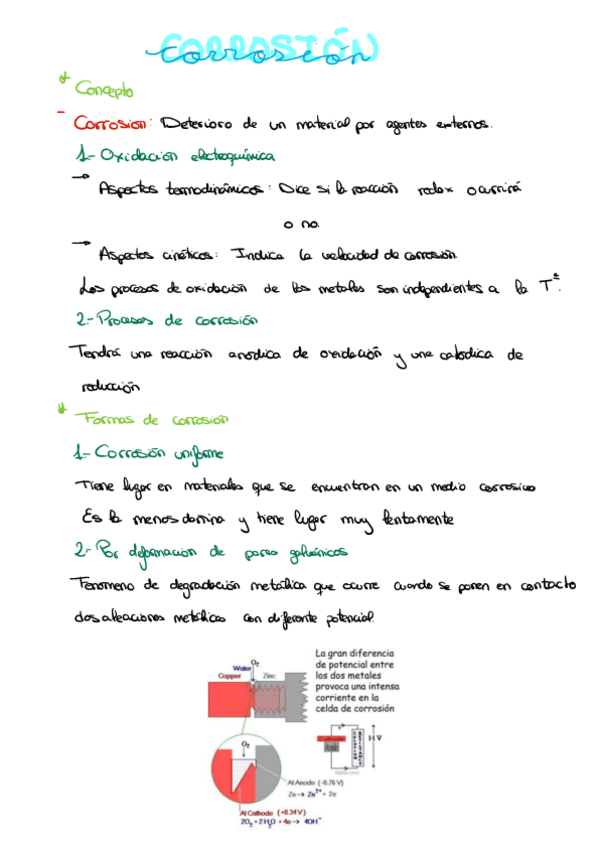 CORROSIÓN
corrosión
Concepto
- Corrosion: Deterioro de un material por agentes externos.
1- Oxidación electroquímica
→ Aspectos termodinámicos: Dice si la reacción redox ocurrirá
o no.
→ Aspectos cinéticos: Indica la velocidad de corrosión.
Los procesos de oxidación de los metales son independientes a la Tª.
2- Procesos de corrosión
Tendrá una reacción anódica de oxidación y una catodica de
reducción
Formas de corrosión
1- Corrosión uniforme
Tiene lugar en materiales que se encuentran en un medio corrosivo
Es la menos damina y tiene lugar muy lentamente
2- Por deformación de pares galvánicos
Fenomeno de degradación metálica que ocurre cuando se ponen en contacto
dos aleaciones metálicas con diferente potencial.
La gran diferencia
de potencial entre
los dos metales
provoca una intensa
corriente en la
celda de corrosión
Water O₂
Copper Zinc
O₂
1.1 V
At Anode (-0.76 V)
Zn → Zn²⁺ + 2e
At Cathode (+0.34V)
2O₂ + 2H₂O + 4e → 4OH⁻